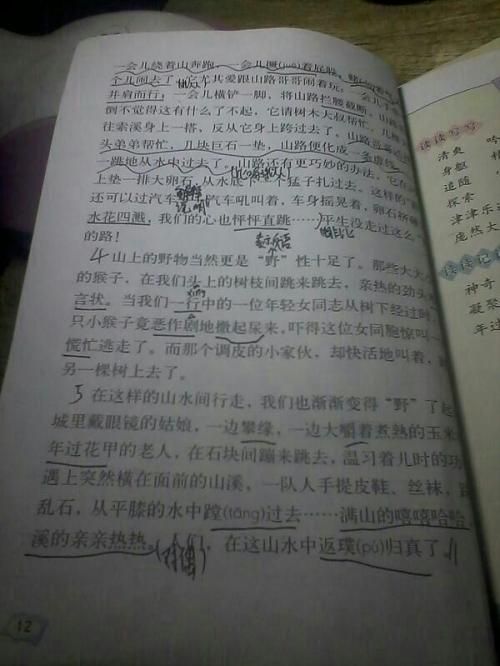 一会儿绕着山奔跑,一会儿撅(juē)着屁股,
个儿闹去了。它尤其爱跟山路哥哥闹着玩:一会儿手
并肩而行;一会儿横铲一脚,将山路拦腰截断。山路
倒不觉得这有什么了不起,它请树木大叔帮忙,几棵
往索溪身上一搭,反从它身上跨过去了。山路哥哥还
头弟弟帮忙,几块巨石一垫,山路便化成一条虚线,
一跳地从水中过去了。山路还有更巧妙的办法,它在
上垫一排大卵石,从水底下一个猛子扎过去。这样的
还可以过汽车。汽车吼叫着,车身摇晃着,卵石挤
水花四溅,我们的心也怦怦直跳……平生没走过这么
的路!
4 山上的野物当然更是“野”性十足了。那些大大小
的猴子,在我们头上的树枝间跳来跳去,亲热的劲头
言状。当我们一行中的一位年轻女同志从树下经过时
只小猴子竟恶作剧地撒起尿来。吓得这位女同胞惊叫一
慌忙逃走了。而那个调皮的小家伙,却快活地叫着,
另一棵树上去了。
5 在这样的山水间行走,我们也渐渐变得“野”了起
城里戴眼镜的姑娘,一边攀缘,一边大嚼着煮熟的玉米
年过花甲的老人,在石块间蹦来跳去,温习着儿时的功
遇上突然横在面前的山溪,一队人手提皮鞋、丝袜,踩
乱石,从平膝的水中蹚(tāng)过去……满山的嘻嘻哈哈
溪的亲亲热热。人们,在这山水中返璞(pú)归真了
12
读读写写
清爽
身躯
追随
探索
津津乐
庞然大
读读记
神奇
凝聚
年过